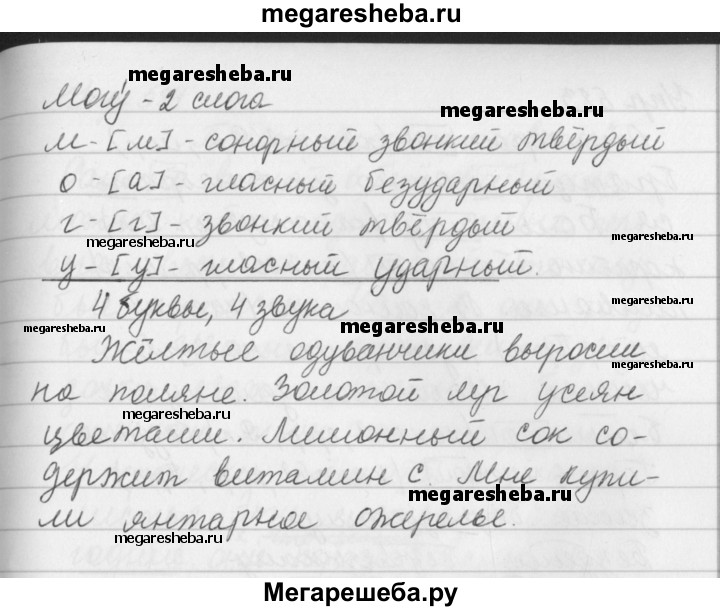 megaresheba.ru
megaresheba.ru
Могу - 2 слога
м - [м] - сонорный звонкий твёрдый
о - [а] - гласный безударный
г - [г] - звонкий твёрдый
megaresheba.ru
megaresheba.ru
у - [у] - гласный ударный.
4 буквы, 4 звука
megaresheba.ru
megaresheba.ru
megaresheba.ru
Жёлтые одуванчики выросли
на поляне. Золотой луг усеян
megaresheba.ru
цветами. Лимонный сок со-
держит витамин с. Мне купи-
megaresheba.ru
ли янтарное ожерелье.
Мегарешеба.ру